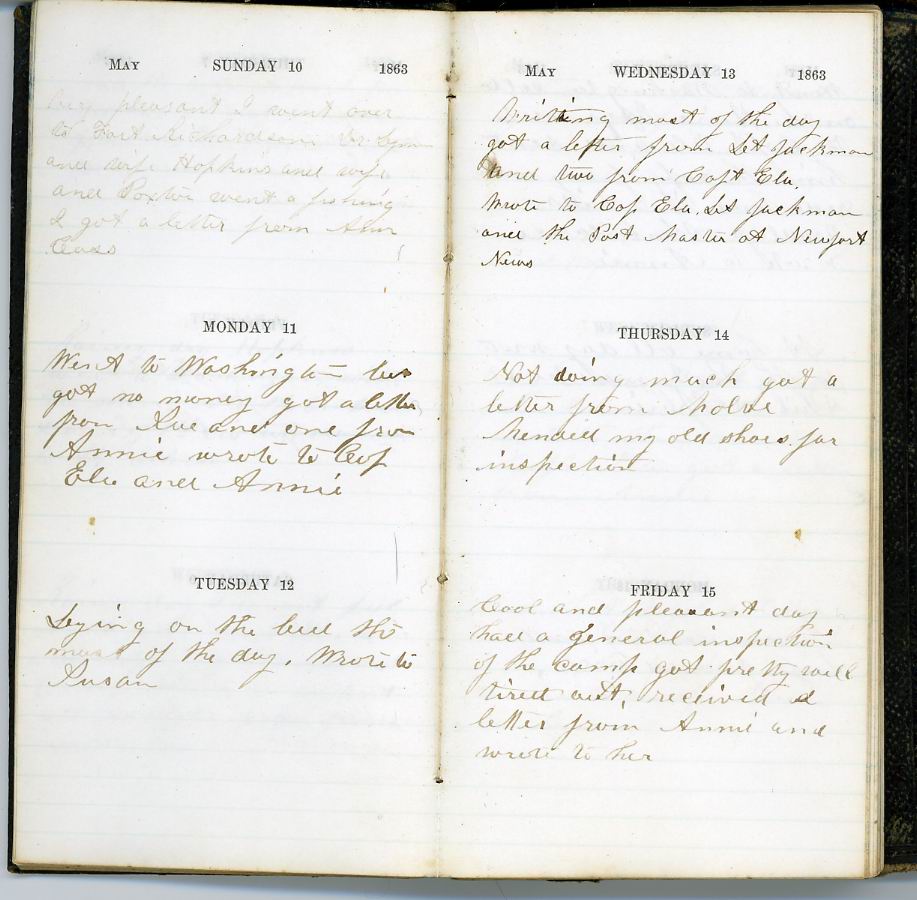 May SUNDAY 10 1863
Very pleasant I went over
to Fort Richardson. Dr Lyman
and wife Hopkins and wife
and Foster went a fishing
I got a letter from Ann
MONDAY 11
Went to Washington but
got no money got a letter
from Sue and one from
Annie wrote to Cap
Ela and Annie
TUESDAY 12
Lying on the bed the
most of the day. Wrote to
Susan
May WEDNESDAY 13 1863
Writting most of the day
got a letter from Lt Jackman
and two from Capt Ela.
Wrote to Cap Ela. Lt Jackman
and the Post Master at Newport
News
THURSDAY 14
Not doing much got a
letter from
Mended my old shoes for
inspection
FRIDAY 15
Cool and pleasant day
had a general inspection
of the camp got pretty well
tired out, received a
letter from Annie and
wrote to her